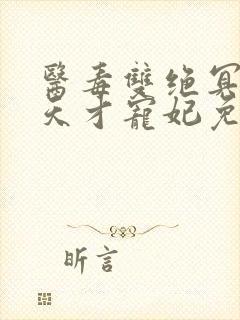 醫毒雙绝冥
天才寵妃免
昕言